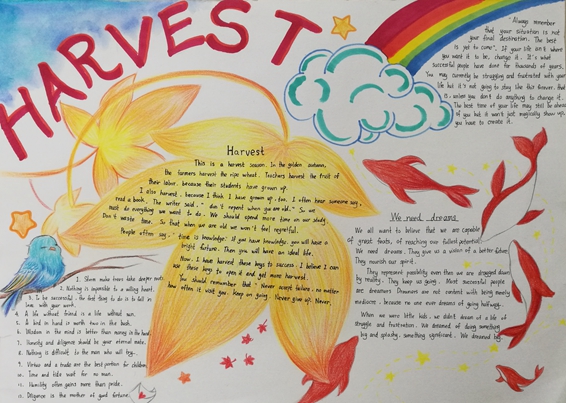 HARVEST
"Always remember
that your situation is not
your final destination. The best
is yet to come". If your life isn't where
you want it to be, change it. It's what
successful people have done for thousands of years.
You may currently be struggling and frustrated with your
life but it's not going to stay like this forever. that
is, unless you don't do anything to change it.
The best time of your life may still be ahead
of you but it won't just magically show up,
you have to create it.
Harvest
This is a harvest season. In the golden autumn,
the farmers harvest the ripe wheat. Teachers harvest the fruit of
their labor, because their students have grown up.
I also harvest, because I think I have grown up. too, I often hear someone say,
read a book. The writer said, " don't repent when you are old." So we
must do everything we want to do. We should spend more time on our study.
Don't waste time. So that when we are old we won't feel regretful.
People often say: " time is knowledge. If you have knowledge, you will have a
bright future. Then you will have an ideal life.
Now. I have harvest these keys to success. I believe I can
use these keys to open it and get more harvest.
You should remember that " Never accept failure, no matter
how often it visit you. Keep on going. Never give up. Never.
We need dreams
We all want to believe that we are capable
of great feats, of reaching our fullest potential.
We need dreams. They give us a vision of a better future.
They nourish our spirit.
They represent possibility even when we are dragged down
by reality. They keep us going. Most successful people
are dreamers. Dreamers are not content with being merely
mediocre, because no one ever dreams of going halfway.
When we were little kids, we didn't dream of a life of
struggle and frustration. We dreamed of doing something
big and splashy, something significant. We dreamed big.
1. Storm make trees take deeper roots.
2. Nothing is impossible to a willing heart.
3. To be successful, the first thing to do is to fall in
love with your work.
4. A life without friend is a life without sun.
5. A bird in hand is worth two in the bush.
6. Wisdom in the mind is better than money in the hand.
7. Honesty and diligence should be your eternal mate.
8. Nothing is difficult to the man who will try.
9. Virtue and a trade are the best portion for children.
10. Time and tide wait for no man.
11. Humility often gains more than pride.
12. Diligence is the mother of good fortune.